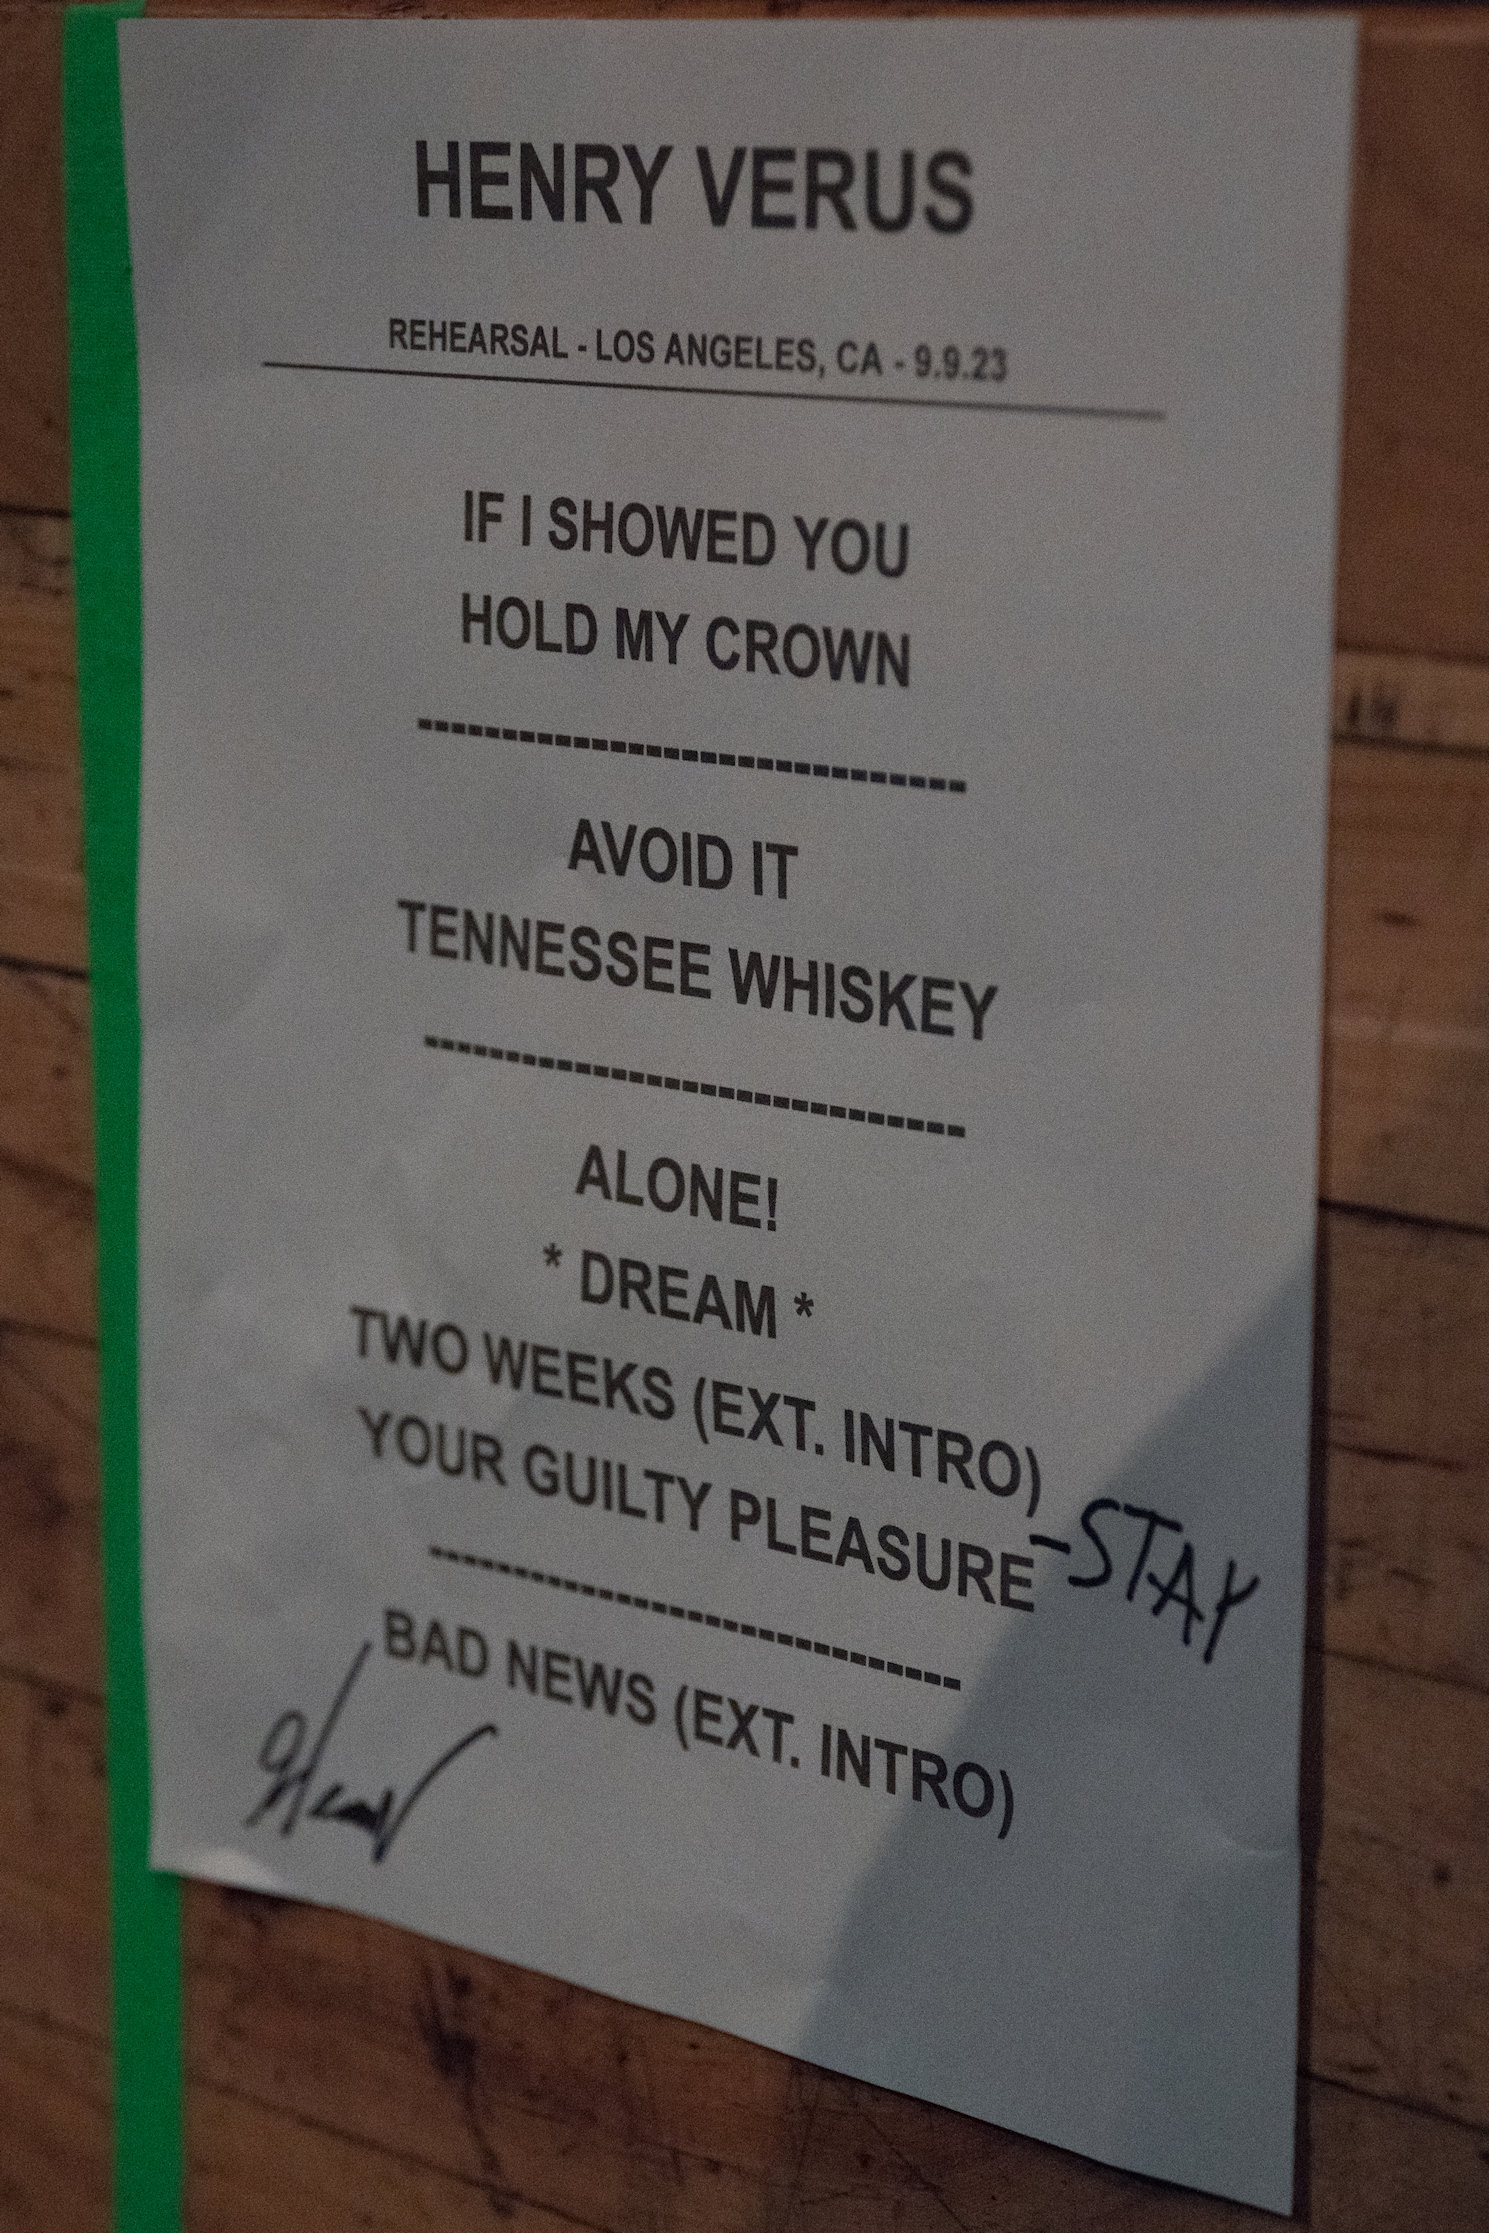 HENRY VERUS
REHEARSAL - LOS ANGELES, CA - 9.9.23
IF I SHOWED YOU
HOLD MY CROWN
------------------------------
AVOID IT
TENNESSEE WHISKEY
------------------------------
ALONE!
* DREAM *
TWO WEEKS (EXT. INTRO)
YOUR GUILTY PLEASURE -STAY
------------------------------
BAD NEWS (EXT. INTRO)